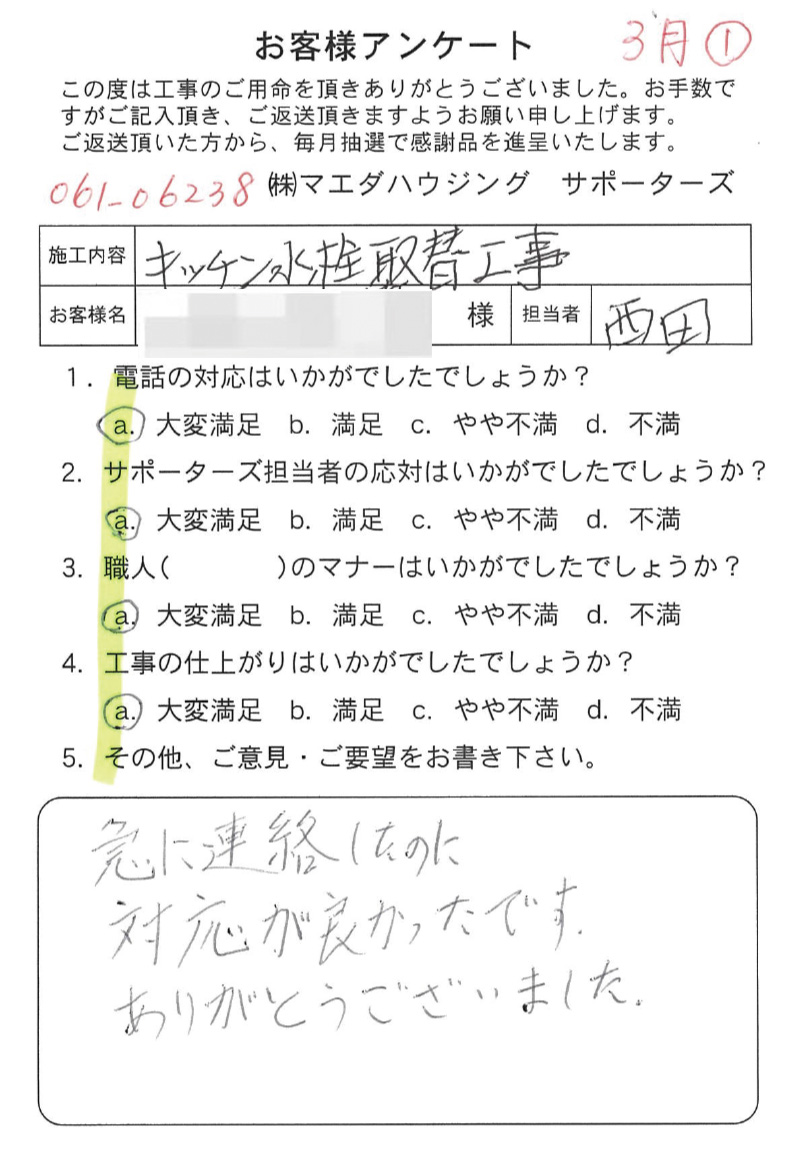 お客様アンケート 3月①
この度は工事のご用命を頂きありがとうございました。お手数で
すがご記入頂き、ご返送頂きますようお願い申し上げます。
ご返送頂いた方から、毎月抽選で感謝品を進呈いたします。
061-06238 ㈱マエダハウジング サポーターズ
施工内容 キッチン水栓取替工事
お客様名 様 担当者 西田
1. 電話の対応はいかがでしたでしょうか?
a. 大変満足 b. 満足 c. やや不満 d. 不満
2. サポーターズ担当者の応対はいかがでしたでしょうか?
a. 大変満足 b. 満足 c. やや不満 d. 不満
3. 職人( )のマナーはいかがでしたでしょうか?
a. 大変満足 b. 満足 c. やや不満 d. 不満
4. 工事の仕上がりはいかがでしたでしょうか?
a. 大変満足 b. 満足 c. やや不満 d. 不満
5. その他、ご意見・ご要望をお書き下さい。
急に連絡したのに
対応が良かったです.
ありがとうございました.